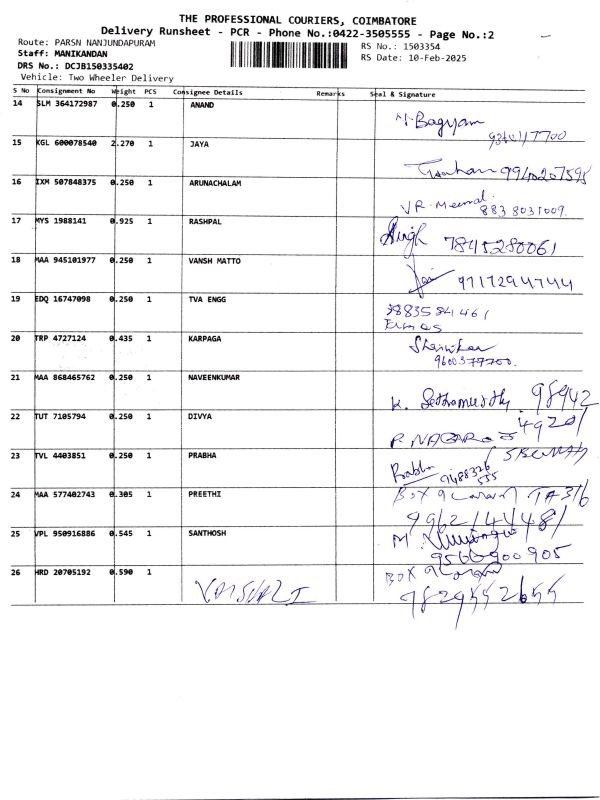 THE PROFESSIONAL COURIERS, COIMBATORE
Delivery Runsheet - PCR - Phone No.:0422-3505555 - Page No.:2
Route: PARSN NANJUNDAPURAM
RS No.: 1503354
Staff: MANIKANDAN
RS Date: 10-Feb-2025
DRS No.: DCJB150335402
Vehicle: Two Wheeler Delivery
S No Consignment No Weight PCS Consignee Details Remarks Seal & Signature
14 SLM 364172987 0.250 1 ANAND
Bagyam
15 KGL 600078540 2.270 1 JAYA
9940207595
16 IXM 507848375 0.250 1 ARUNACHALAM
VR. Meenal
8838031009.
17 MYS 1988141 0.925 1 RASHPAL
Singh 7845280061
18 MAA 945101977 0.250 1 VANSH MATTO
9717294744
19 EDQ 16747098 0.250 1 TVA ENGG
3883584461
20 TRP 4727124 0.435 1 KARPAGA
9600377700.
21 MAA 868465762 0.250 1 NAVEENKUMAR
K. Sethamurthy 98942
22 TUT 7105794 0.250 1 DIVYA
49201
23 TVL 4403851 0.250 1 PRABHA
Prabha 9488326
555
24 MAA 577402743 0.305 1 PREETHI
Box 9
9962144481
25 VPL 950916886 0.545 1 SANTHOSH
M.
9566900905
26 HRD 20705192 0.590 1
BOX 9
9829552655